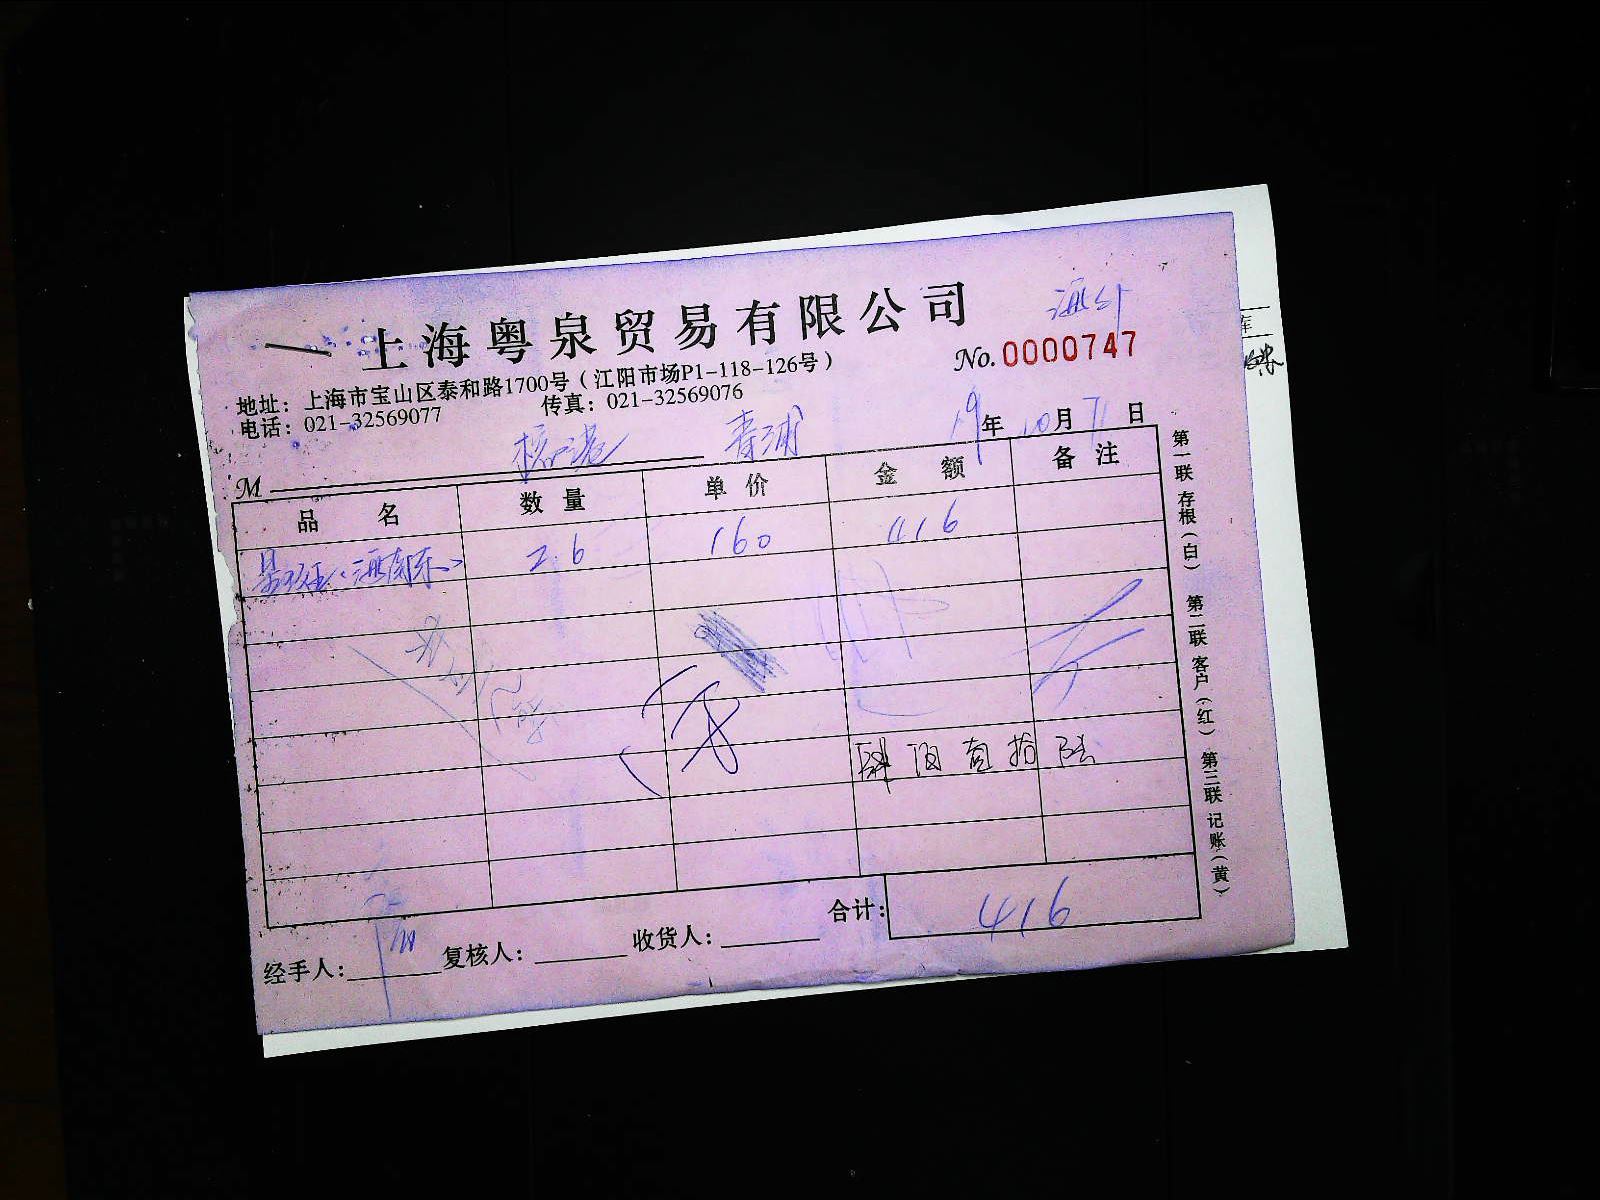 上海粤泉贸易有限公司
No. 0000747
地址：上海市宝山区泰和路1700号（江阳市场P1-118-126号）
电话：021-32569077 传真：021-32569076
M 青浦 19年10月 日
品名 数量 单价 金额 备注
2.6 160 416
肆佰壹拾陆
合计：416
经手人： 复核人： 收货人：
第一联 存根（白） 第二联 客户（红） 第三联 记账（黄）